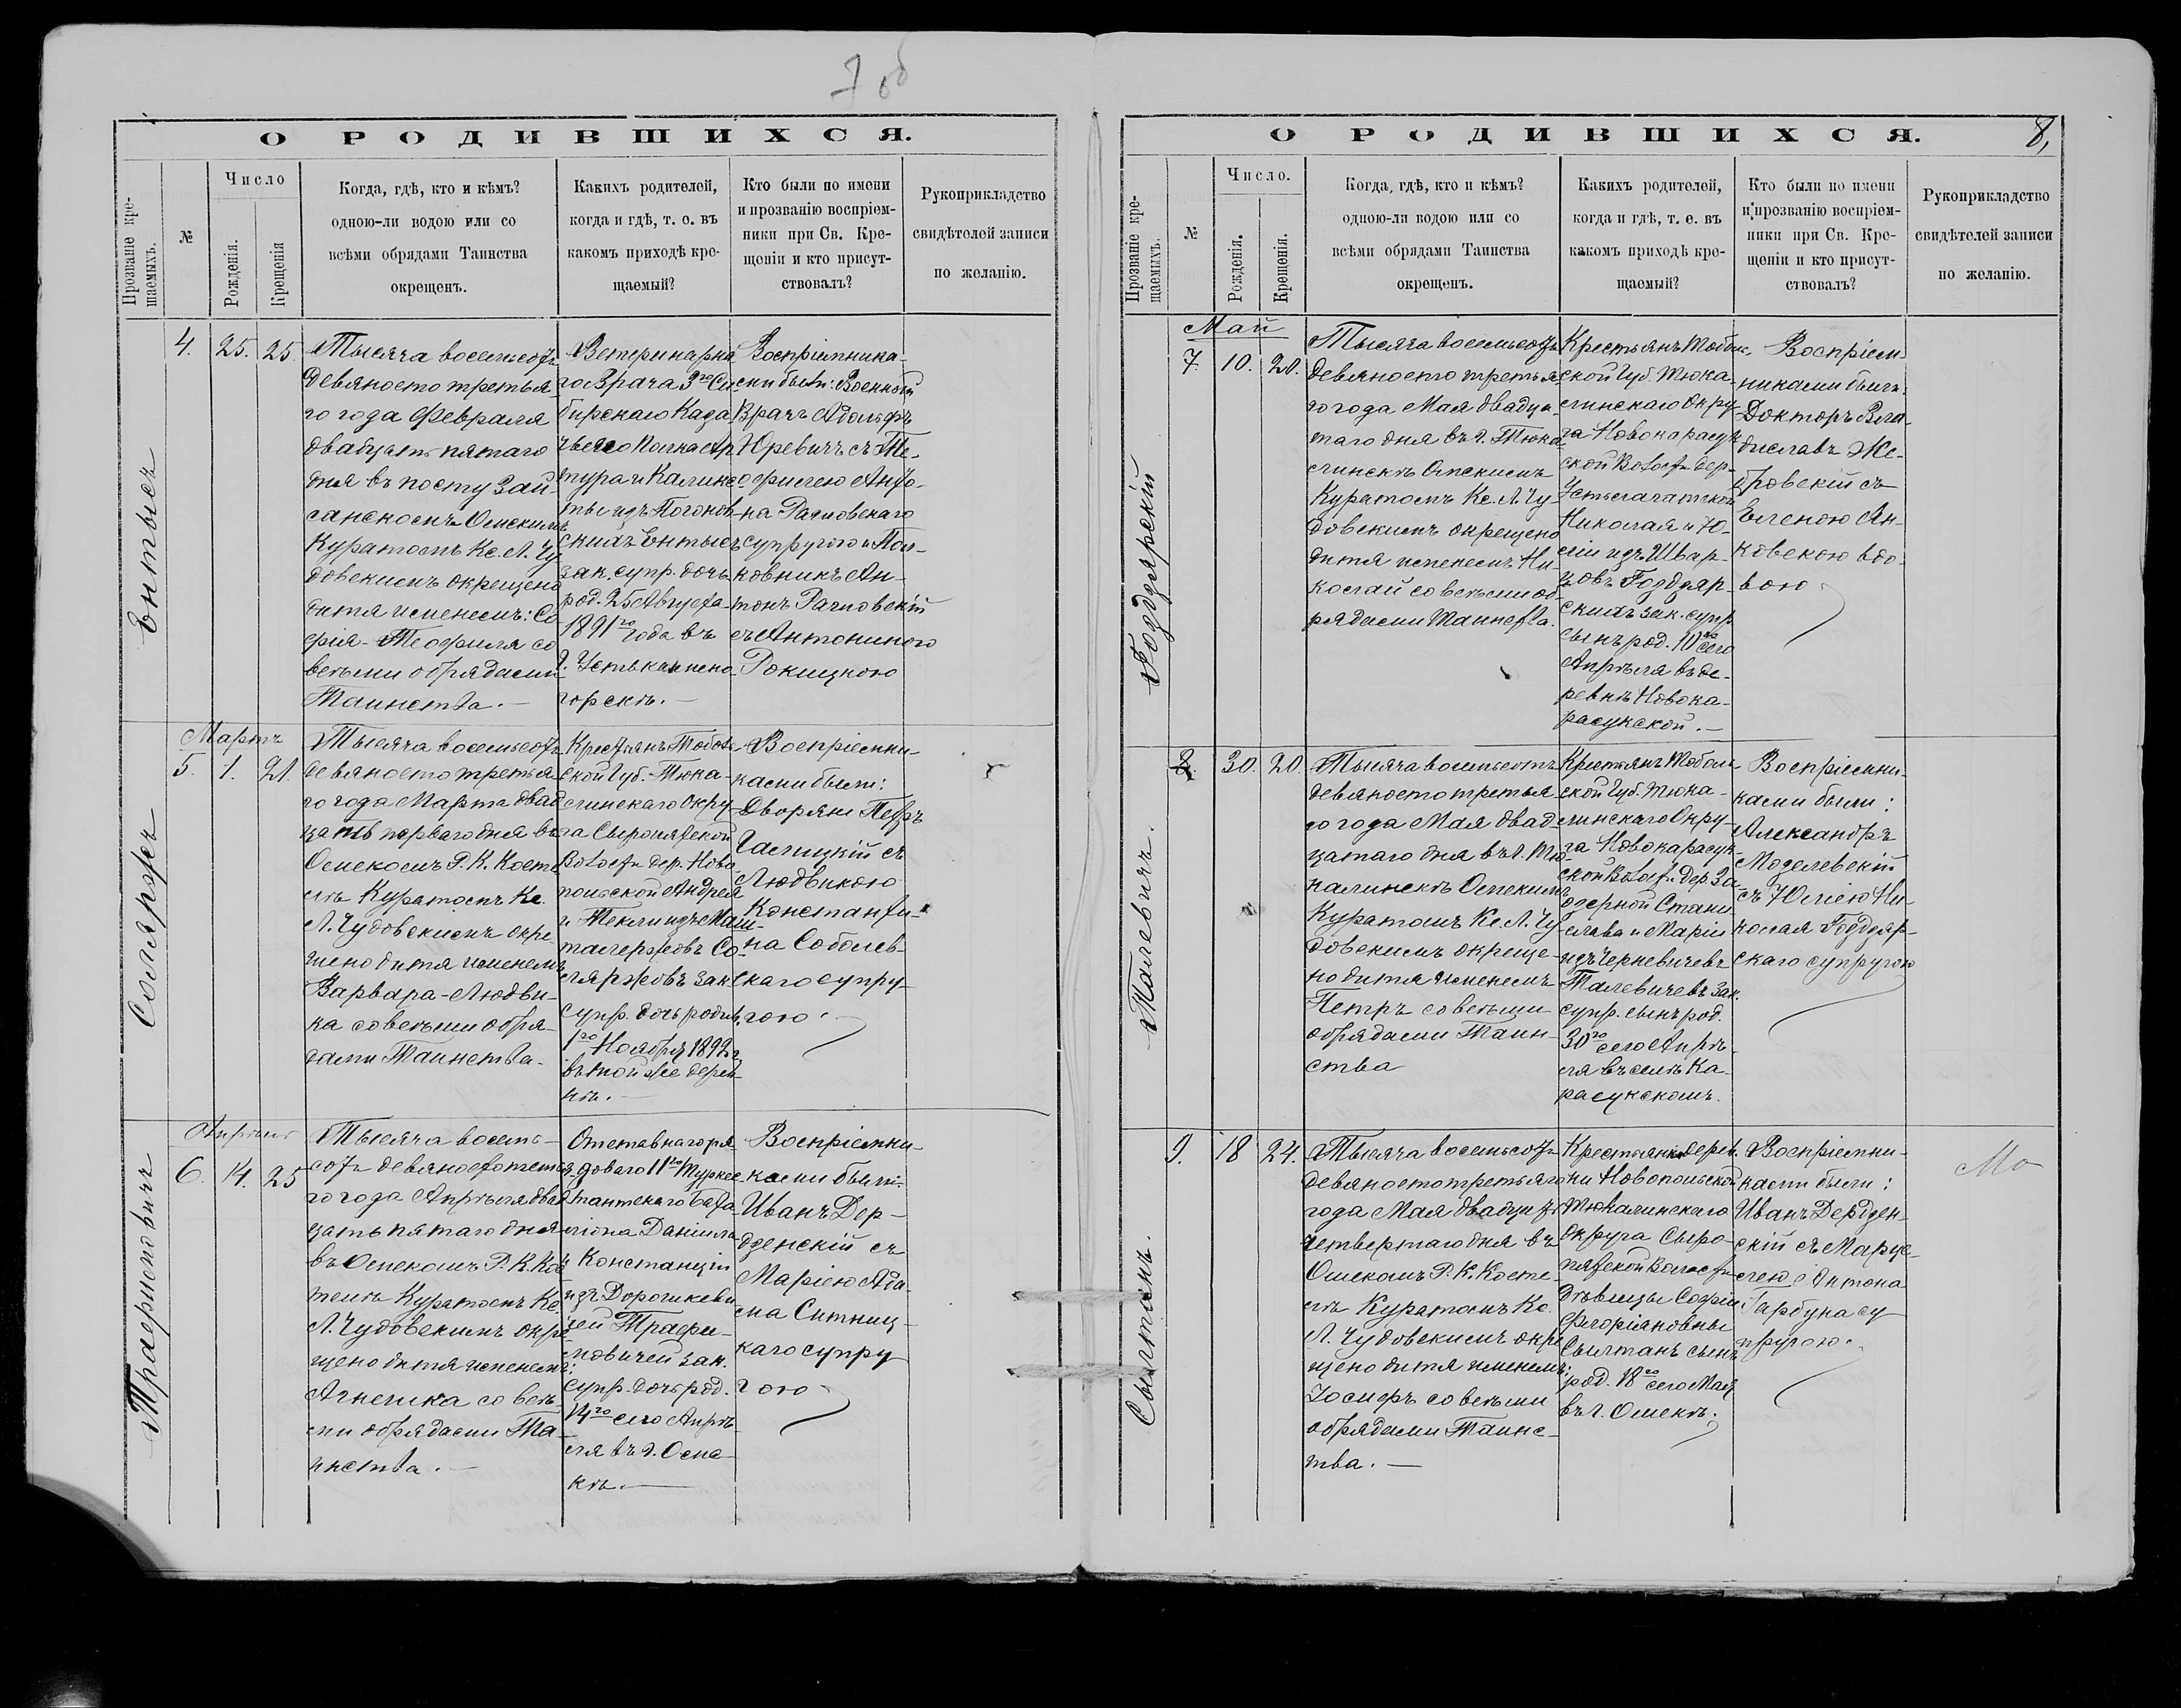 7 об
О РОДИВШИХСЯ.
Прозваніе кре-
щаемыхъ.
№
Число
Рожденія.
Крещенія
Когда, гдѣ, кто и кѣмъ?
одною-ли водою или со
всѣми обрядами Таинства
окрещенъ.
Какихъ родителей,
когда и гдѣ, т. е. въ
какомъ приходѣ кре-
щаемый?
Кто были по имени
и прозванію воспріем-
ники при Св. Кре-
щеніи и кто присут-
ствовалъ?
Рукоприкладство
свидѣтелей записи
по желанію.
Ентысъ
4. 25. 25
Тысяча восемьсотъ
девяносто третья-
го года Февраля
двадцать пятаго
дня въ посту Зай-
санскомъ Омскимъ
Куратомъ Кс. Л. Чу
довскимъ окрещено
дитя именемъ: Со
фія-Теофиля со
всѣми обрядами
Таинства.-
Ветеринарна
го Врача 3го Си
бирскаго Каза
чьяго Полка Ар
тура и Калике
ты изъ Погонов
скихъ Ентысъ
зак. супр. дочь
род. 25 Августа
1891го года въ
г. Устькамено-
горскѣ.-
Воспріемника-
ми были: Военный
Врачъ Адольфъ
Юревичъ съ Те-
офилею Анто-
на Рачковскаго
супругою и Пол-
ковникъ Ан-
тонъ Рачковскій
съ Антониною
Рокицкою
Соляржъ
Мартъ
5. 1. 21.
Тысяча восемьсотъ
девяносто третья-
го года Марта двад
цать перваго дня въ
Омскомъ Р. К. Косте
лѣ Куратомъ Кс.
Л. Чудовскимъ окре
щено дитя именемъ
Варвара-Людви-
ка со всѣми обря-
дами Таинства.
Крестьянъ Тоболь
ской Губ. Тюка-
линскаго Окру-
га Сыропятской
Волости дер. Ново
польской Андрея
и Текли изъ Маш-
талержовъ Со-
ляржовъ зак
супр. дочь родив.
1го Ноября 1892 г.
въ той же дерев
нѣ.-
Воспріемни-
ками были:
Дворяне Петръ
Галицкій съ
Людвикою
Константи-
на Соболев-
скаго супру-
гою.-
Трафимовичъ
Апрѣль
6. 14. 25
Тысяча восемь-
сотъ девяносто третья
го года Апрѣля двад
цать пятаго дня
въ Омскомъ Р. К. Кос
телѣ Куратомъ Кс.
Л. Чудовскимъ окре
щено дитя именемъ:
Агнешка со всѣ-
ми обрядами Та-
инства.-
Отставнаго ря-
доваго 11го Турке
станскаго Бата-
ліона Даніила
Констанціи
изъ Дорошкеви
чей Трафи-
мовичей зак.
супр. дочь род.
14го сего Апрѣ-
ля въ г. Омс-
кѣ.-
Воспріемни-
ками были:
Иванъ Дер-
дзенскій съ
Маріею Ада-
ма Ситниц-
каго супру
гою
8,
О РОДИВШИХСЯ.
Прозваніе кре-
щаемыхъ.
№
Число.
Рожденія.
Крещенія.
Когда, гдѣ, кто и кѣмъ?
одною-ли водою или со
всѣми обрядами Таинства
окрещенъ.
Какихъ родителей,
когда и гдѣ, т. е. въ
какомъ приходѣ кре-
щаемый?
Кто были по имени
и прозванію воспріем-
ники при Св. Кре-
щеніи и кто присут-
ствовалъ?
Рукоприкладство
свидѣтелей записи
по желанію.
Гоздзярскій
Май
7. 10. 20.
Тысяча восемьсотъ
девяносто третья
го года Мая двадца-
таго дня въ г. Тюка
линскѣ Омскимъ
Куратомъ Кс. Л. Чу-
довскимъ окрещено
дитя именемъ Ни-
колай со всѣми об-
рядами Таинства.
Крестьянъ Тоболь
ской Губ. Тюка-
линскаго Окру-
га Новокарасук
ской Волости дер.
Николая и Ю-
ліи изъ Швар-
цовъ Гоздзяр-
скихъ зак. супр
сынъ род. 10го сего
Апрѣля въ де-
ревнѣ Новока-
расукской.-
Воспріем
никами были:
Докторъ Вла-
диславъ Же-
бровскій съ
Еленою Ян-
ковскою вдо-
вою
Талевичъ.
8. 30. 20.
Тысяча восемьсотъ
девяносто третья
го года Мая двад-
цатаго дня въ г. Тю-
калинскѣ Омскимъ
Куратомъ Кс. Л. Чу-
довскимъ окреще-
но дитя именемъ
Петръ со всѣми
обрядами Таин-
ства
Крестьянъ Тоболь
ской Губ. Тюка-
линскаго Окру-
га Новокарасук-
ской Волости дер. За-
озерной Стани-
слава и Маріи
изъ Черневичевъ
Талевичевъ зак.
супр. сынъ род.
30го сего Апрѣ-
ля въ селѣ Ка-
расукскомъ.
Воспріемни-
ками были:
Александръ
Модзелевскій
съ Юліею Ни-
колая Гоздзяр-
скаго супругою
Сылтанъ.
9. 18 24.
Тысяча восемьсотъ
девяносто третьяго
года Мая двадцать
четвертаго дня въ
Омскомъ Р. К. Косте-
лѣ Куратомъ Кс.
Л. Чудовскимъ окре
щено дитя именемъ:
Іосифъ со всѣми
обрядами Таинс-
тва.-
Крестьянки дерев.
ни Новопольской
Тюкалинскаго
Округа Сыро-
пятской Волости
Дѣвицы Софіи
Флоріановны
Сылтанъ сынъ
род. 18го сего Мая
въ г. Омскѣ.
Воспріемни-
ками были:
Иванъ Дердзен-
скій съ Марце-
лею Антона
Гарбука су
пругою.